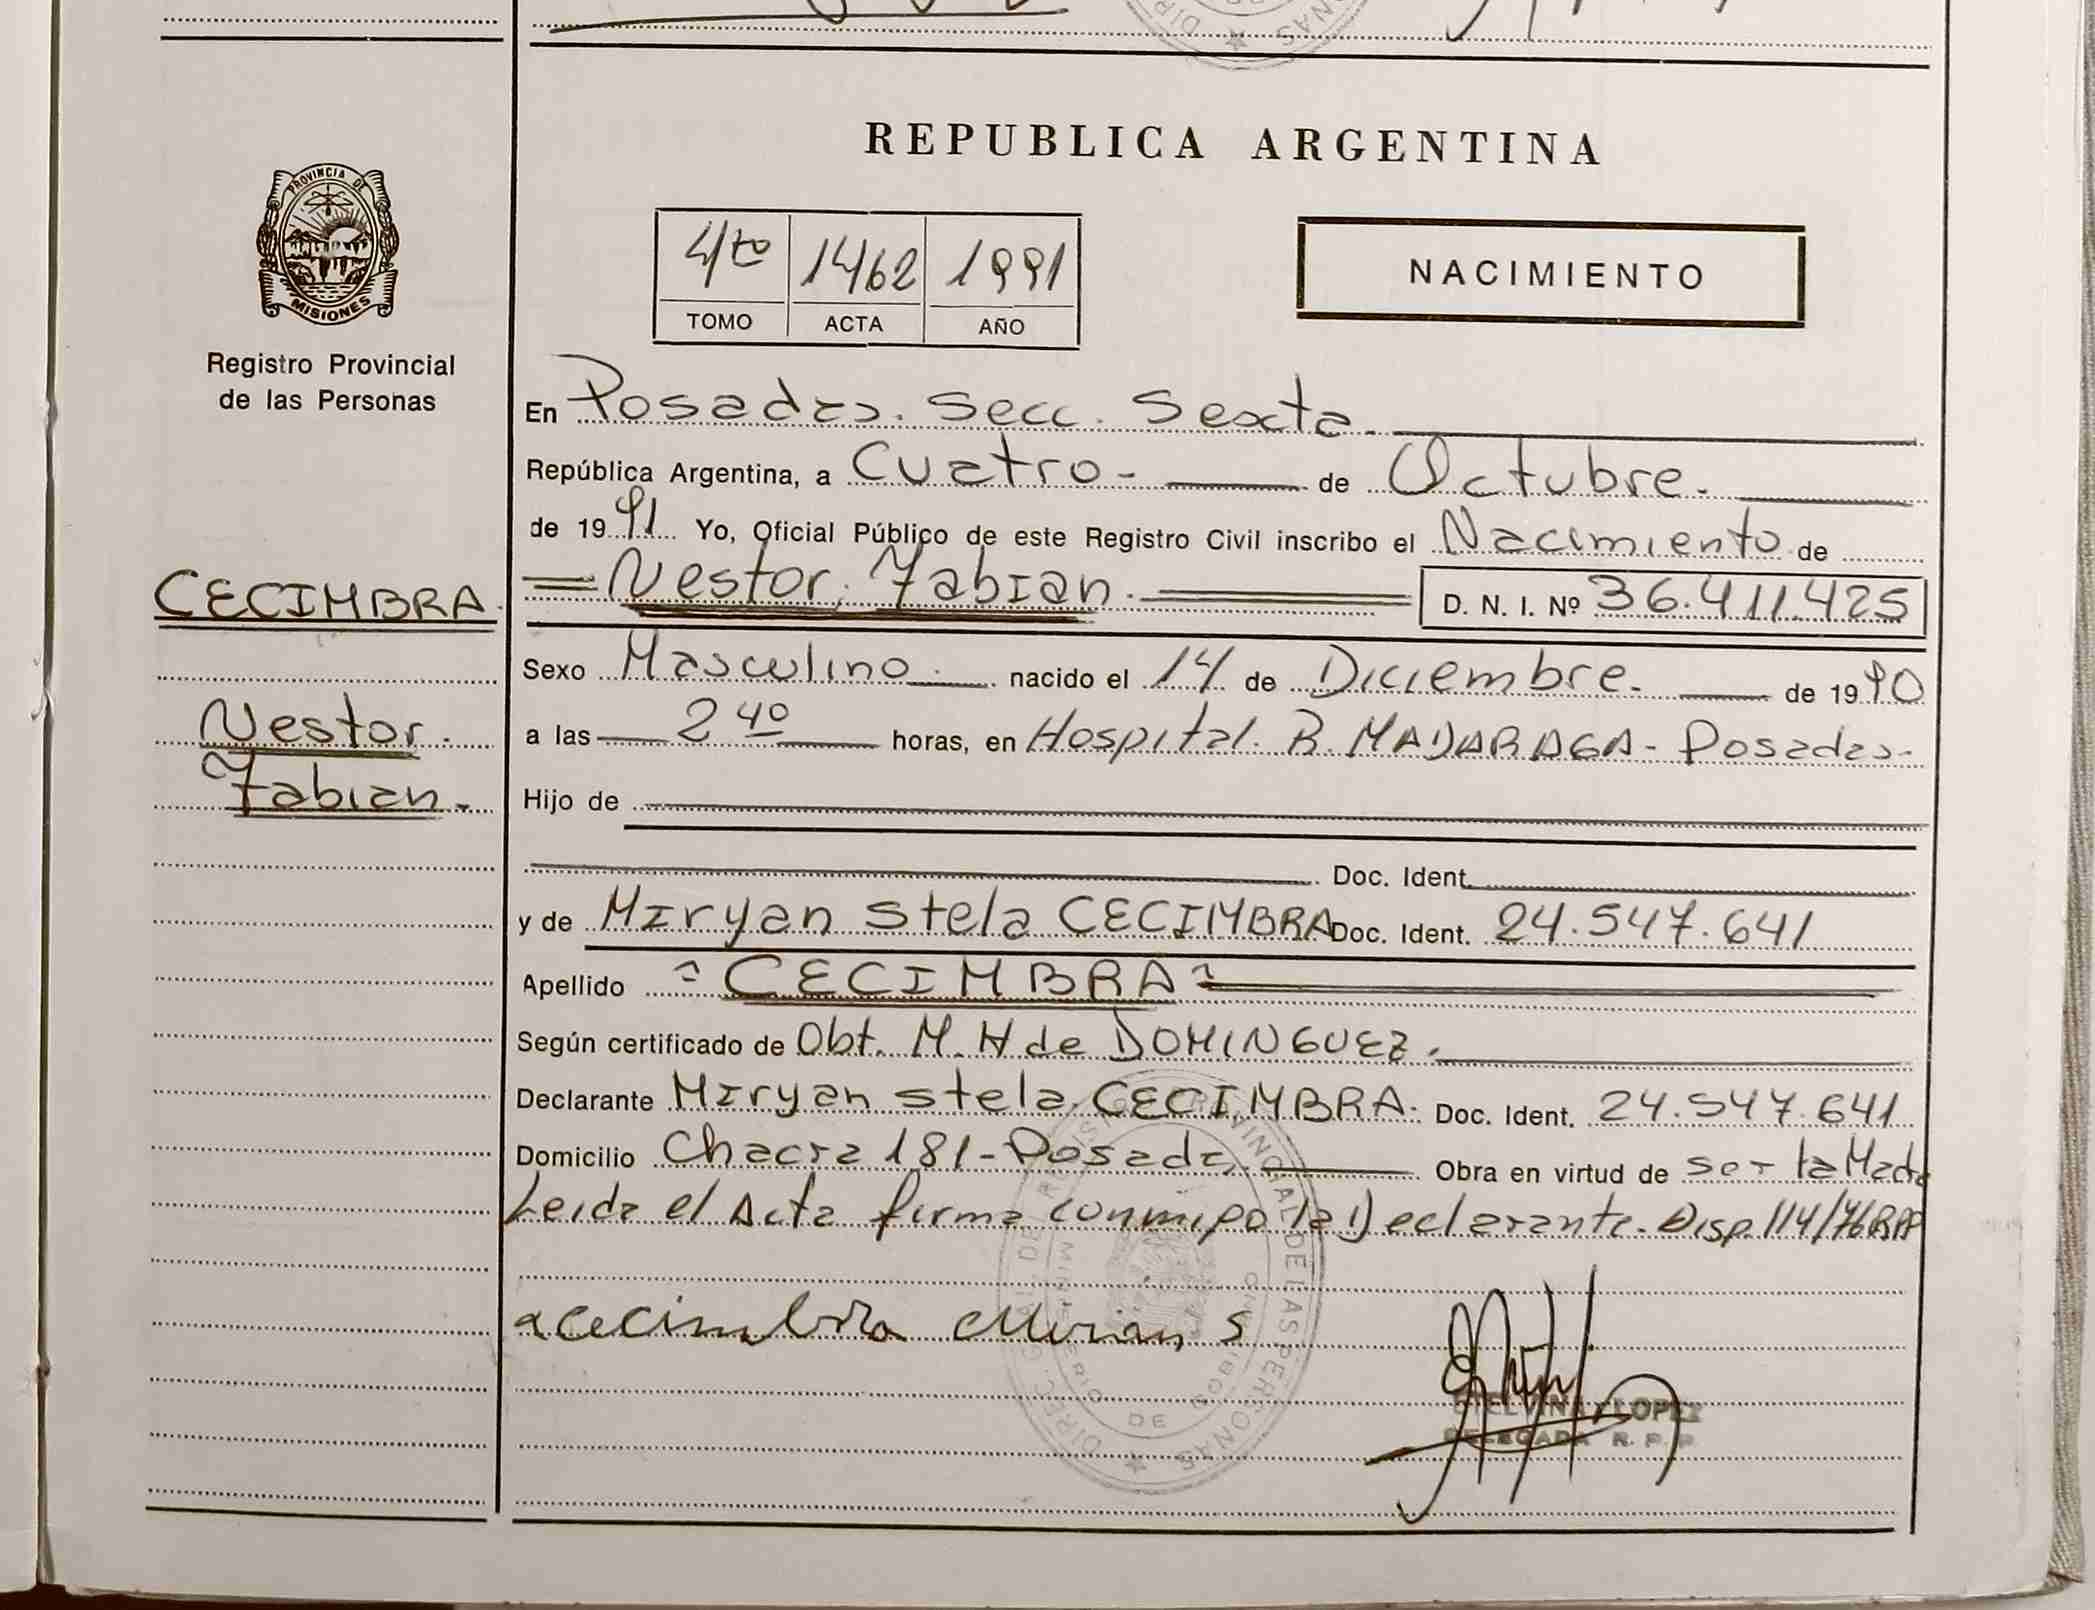 REPUBLICA ARGENTINA
PROVINCIA DE
MISIONES
Registro Provincial
de las Personas
4to 1462 1991
TOMO ACTA AÑO
NACIMIENTO
En Posadas. Secc. Sexta.
República Argentina, a Cuatro.- de Octubre.
de 1991 Yo, Oficial Público de este Registro Civil inscribo el Nacimiento de
CECIMBRA.
Nestor, Fabian. D. N. I. Nº 36.411.425
Sexo Masculino. nacido el 14 de Diciembre. de 1990
Nestor.
a las 2 40 horas, en Hospital. R. MADARAGA- Posadas-
Fabian.
Hijo de
Doc. Ident.
y de Miryan Stela CECIMBRA Doc. Ident. 24.547.641
Apellido CECIMBRA
Según certificado de Obt. M. H de DOMINGUEZ.
Declarante Miryan Stela CECIMBRA. Doc. Ident. 24.547.641
Domicilio Chacra 181-Posadas Obra en virtud de ser la Madre
Leida el Acta firma conmigo la Declarante. Disp. 114/76 RPP
Cecimbra Mirian S
LOPEZ
DELEGADA R. P. P.
DIREC. GRAL. DE REGISTRO PROVINCIAL DE LAS PERSONAS
MINISTERIO DE GOBIERNO